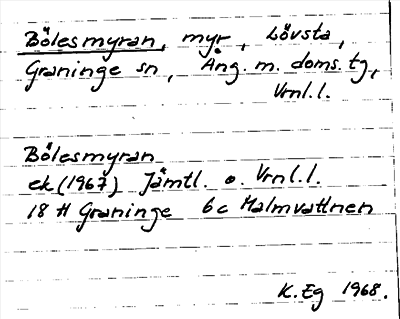 Bölesmyran, myr, Lövsta,
Graninge sn, Ång. m. doms. tg,
Vrnl.l.
Bölesmyran
ek (1967) Jämtl. o. Vrnl.l.
18 H Graninge 6c Malmvattnen
K. Eg 1968.